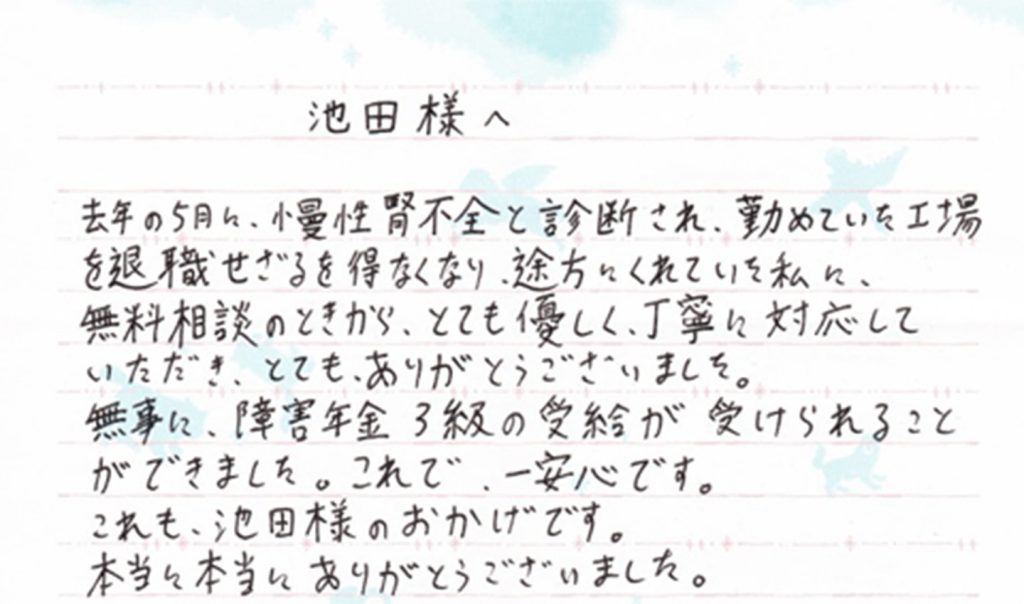 池田様へ
去年の5月に、慢性腎不全と診断され、勤めていた工場
を退職せざるを得なくなり、途方にくれていた私に、
無料相談のときから、とても優しく、丁寧に対応して
いただき、とても、ありがとうございました。
無事に、障害年金3級の受給が受けられること
ができました。これで、一安心です。
これも、池田様のおかげです。
本当に本当にありがとうございました。